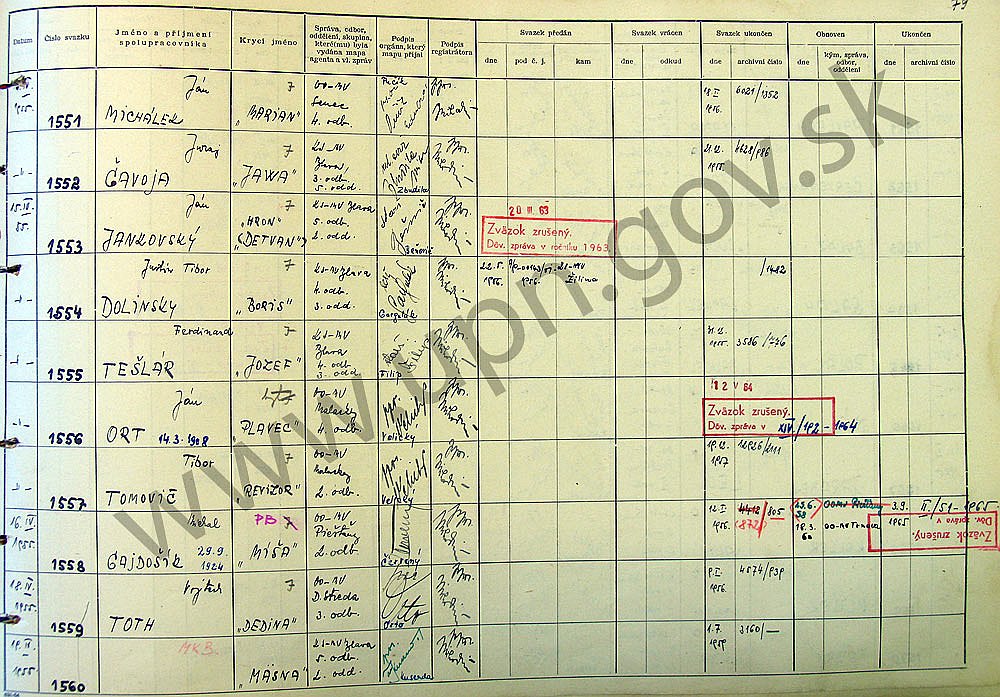 79
Datum
Číslo svazku
Jméno a příjmení
spolupracovníka
Krycí jméno
Správa, odbor,
oddělení, skupina,
které(mu) byla
vydána mapa
agenta a vl. zpráv
Podpis
orgána, který
mapu přijal
Podpis
registrátora
Svazek předán
dne
pod č. j.
kam
Svazek vrácen
dne
odkud
Svazek ukončen
dne
archivní číslo
Obnoven
dne
kým, správa,
odbor,
oddělení
Ukončen
dne
archivní číslo
1955.
1551
Ján
MICHÁLEK
7
"MARIAN"
OO-MV
Senec
4. odb.
18. I.
1956.
6021/1352
1552
Juraj
ČAVOJA
7
"JAWA"
KS-MV
Blava
3. odb.
5. odd.
Zbudila
21.12.
1955.
15. IV.
55.
1553
Ján
JANKOVSKÝ
7
"HRON"
"DETVAN"
KS-MV Blava
5. odb.
2. odd.
Beňovič
20 III. 63
Zväzok zrušený.
Dôv. zpráva v ročníku 1963.
1554
Justín Tibor
DOLINSKY
7
"BORIS"
KS-MV Blava
4. odb.
3. odd.
22.5.
1956.
1956.
KS-MV
Žilina
/1482
1555
Ferdinand
TEŠLÁR
7
"JOZEF"
KS-MV
Blava
4. odb.
3. odd.
Filip
1955.
3586/746
1556
Ján
ORT 14.3.1908
"PLAVEC"
OO-MV
Malacky
4. odb.
Velický
12 V 64
Zväzok zrušený.
Dôv. zpráva v XIV./192-1964
1557
Tibor
TOMOVIČ
7
"REVIZOR"
OO-MV
Malacky
2. odb.
Velický
19.12.
1957
12926/211
16. IV.
1955.
1558
Michal
GAJDOŠÍK 29.9.
1924
PB 7
"MIŠA"
OO-MV
Piešťany
2. odb.
Červený
12. I.
1956.
4412/805
(872)
23.6.
58
OO-MV Piešťany
18.3.
60
OO-MV Trnava
3.9.
1965
II./51-1965
Zväzok zrušený.
Dôv. zpráva v
18. IV.
1955.
1559
Vojtech
TOTH
7
"DEDINA"
OO-MV
D. Streda
3. odb.
Orto
9. I.
1956.
4574/939
1955
1560
MKB.
"MÄSNA"
KS-MV Blava
5. odb.
2. odd.
1.7.
1959
3160/—
www.upn.gov.sk